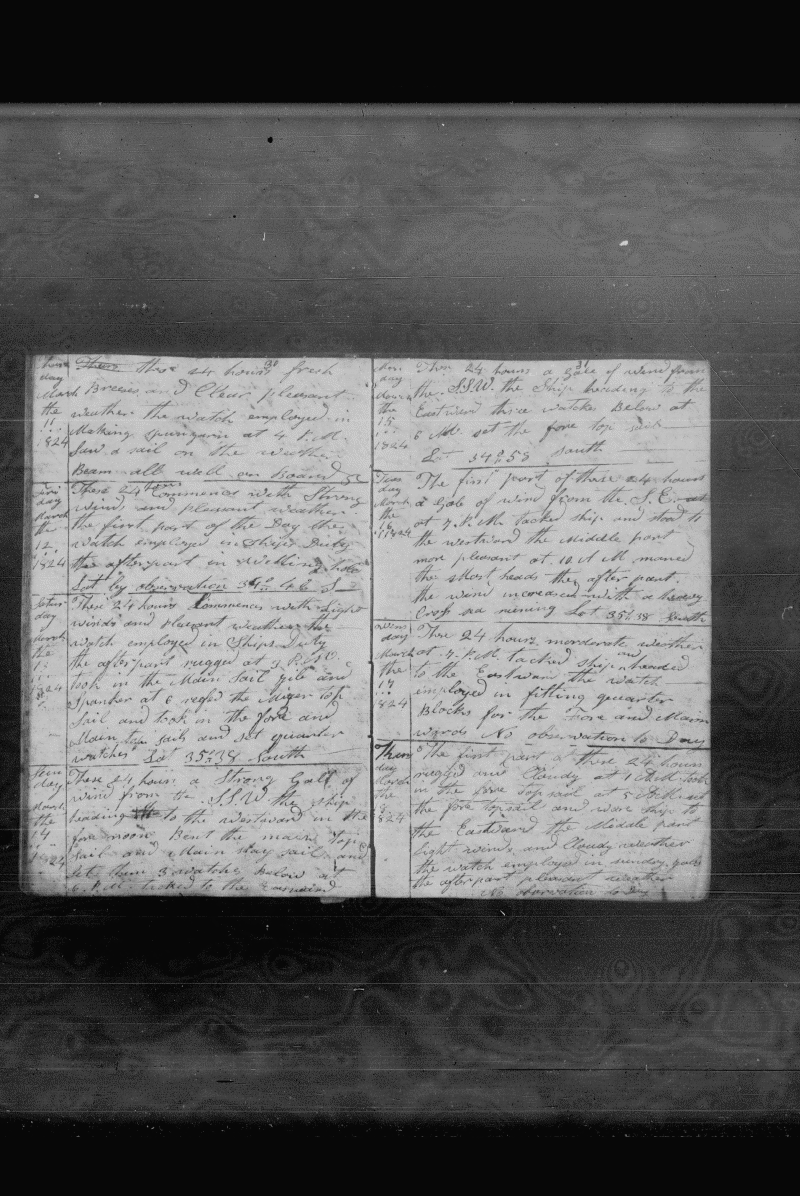 30
thurs day March the 11 1824
These 24 hours fresh
Breezes and Clear pleasant
weather the watch employed in
Making spunyarn at 4 P.M.
Saw a sail on the weather
Beam all well on Board
Fri day March the 12 1824
These 24 hours Commences with Strong
winds and pleasant weather
the first part of the Day the
watch employed in Ships Duty
the afterpart in
Lat by observation 34° 46 S
Satur day March the 13 1824
These 24 hours Commences with Light
winds and pleasant weather the
watch employed in Ships Duty
the afterpart rugged at 3 P.M.
took in the Main Sail gib and
Spanker at 6 refd the Mizen top
Sail and took in the fore and
Main top sail and set quarter
watches Lat 35° 38 South
Sun day March the 14 1824
These 24 hours a Strong Gale of
wind from the S.S.W the ship
heading to the westward in the
fore noon Bent the main top
sail and Main stay sail and
set them 3 watches Below at
6 P.M. tacked to the Eastward
31
Mon day March the 15 1824
These 24 hours a Gale of wind from
the S.S.W. the Ship heading to the
Eastward three watches Below at
6 M set the fore top sail
Lat 34° 58 South
Tues day March the 16 1824
The first part of these 24 hours
a Gale of wind from the S.E.
at 7 P.M tacked ship and stood to
the westward the Middle part
more pleasant at 10 A M maned
the Mast heads the after part
the wind increased with a heavy
Cross sea runing Lat 35° 38 South
Wens day March the 17 1824
These 24 hours morderate weather
at 7 P.M tacked ship and headed
to the Eastward the watch
employed in fitting quarter
Blocks for the Fore and Main
yards No observation to Day
Thurs day March the 18 1824
The first part of these 24 hours
rugged and Cloudy at 1 A M took
in the fore top sail at 5 A M set
the fore topsail and wore ship to
the Eastward the Middle part
light winds and Cloudy weather
the watch employed in sundry jobs
the after part pleasant weather
No observation to Day